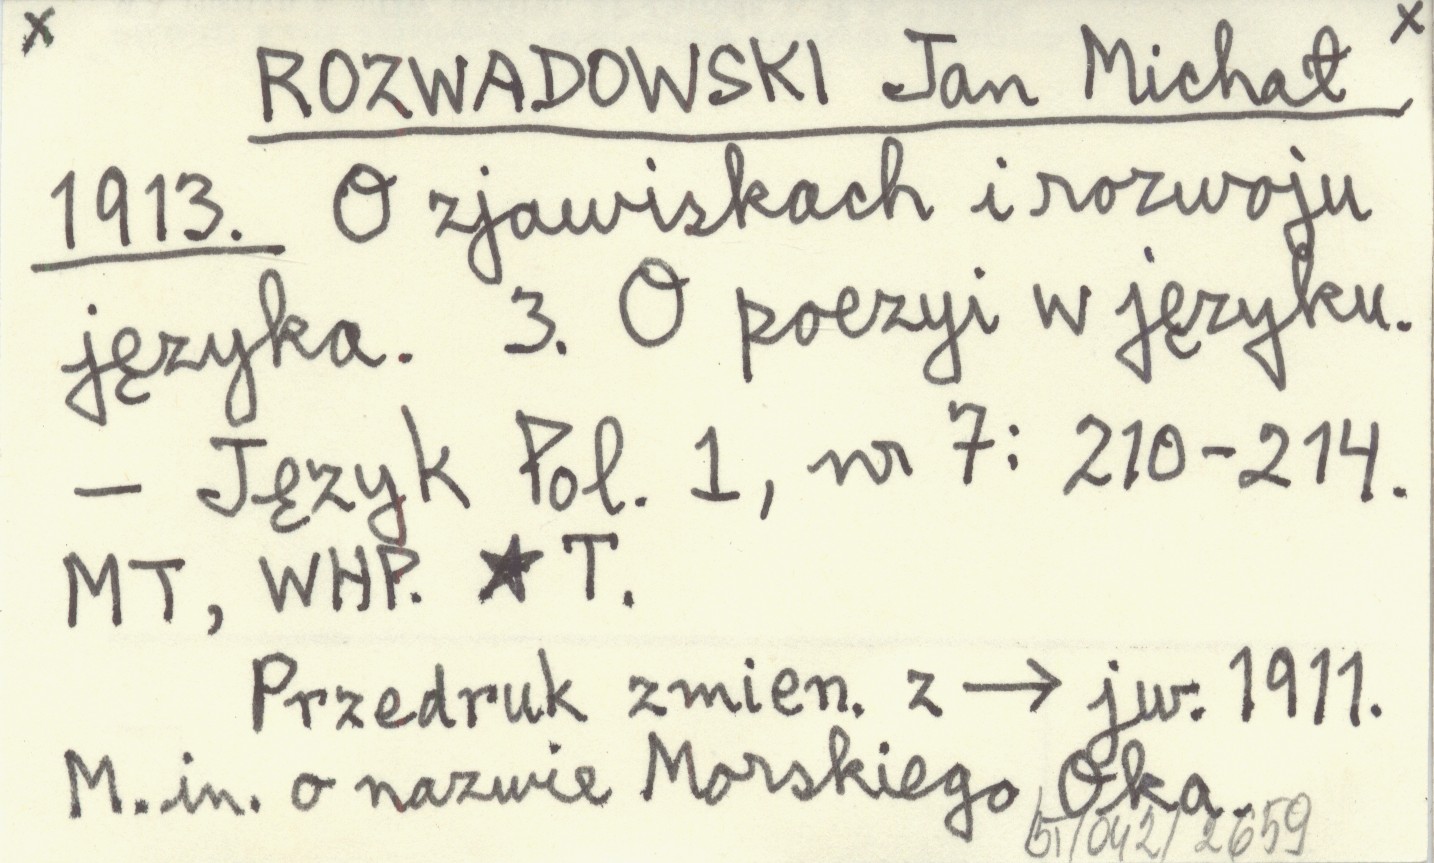 x x
ROZWADOWSKI Jan Michał
1913. O zjawiskach i rozwoju
języka. 3. O poezyi w języku.
— Język Pol. 1, nr 7: 210-214.
MT, WHP. ★ T.
Przedruk zmien. z → jw. 1911.
M. in. o nazwie Morskiego Oka.
/042/2659